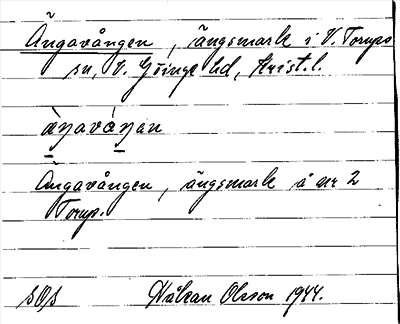 Ängavången, ängsmark i V. Torups
sn, V. Göinge hd, Krist. l.
àŋaváŋan
Ängavången, ängsmark å nr 2
Torup.
sOs Håkan Olsson 1944.